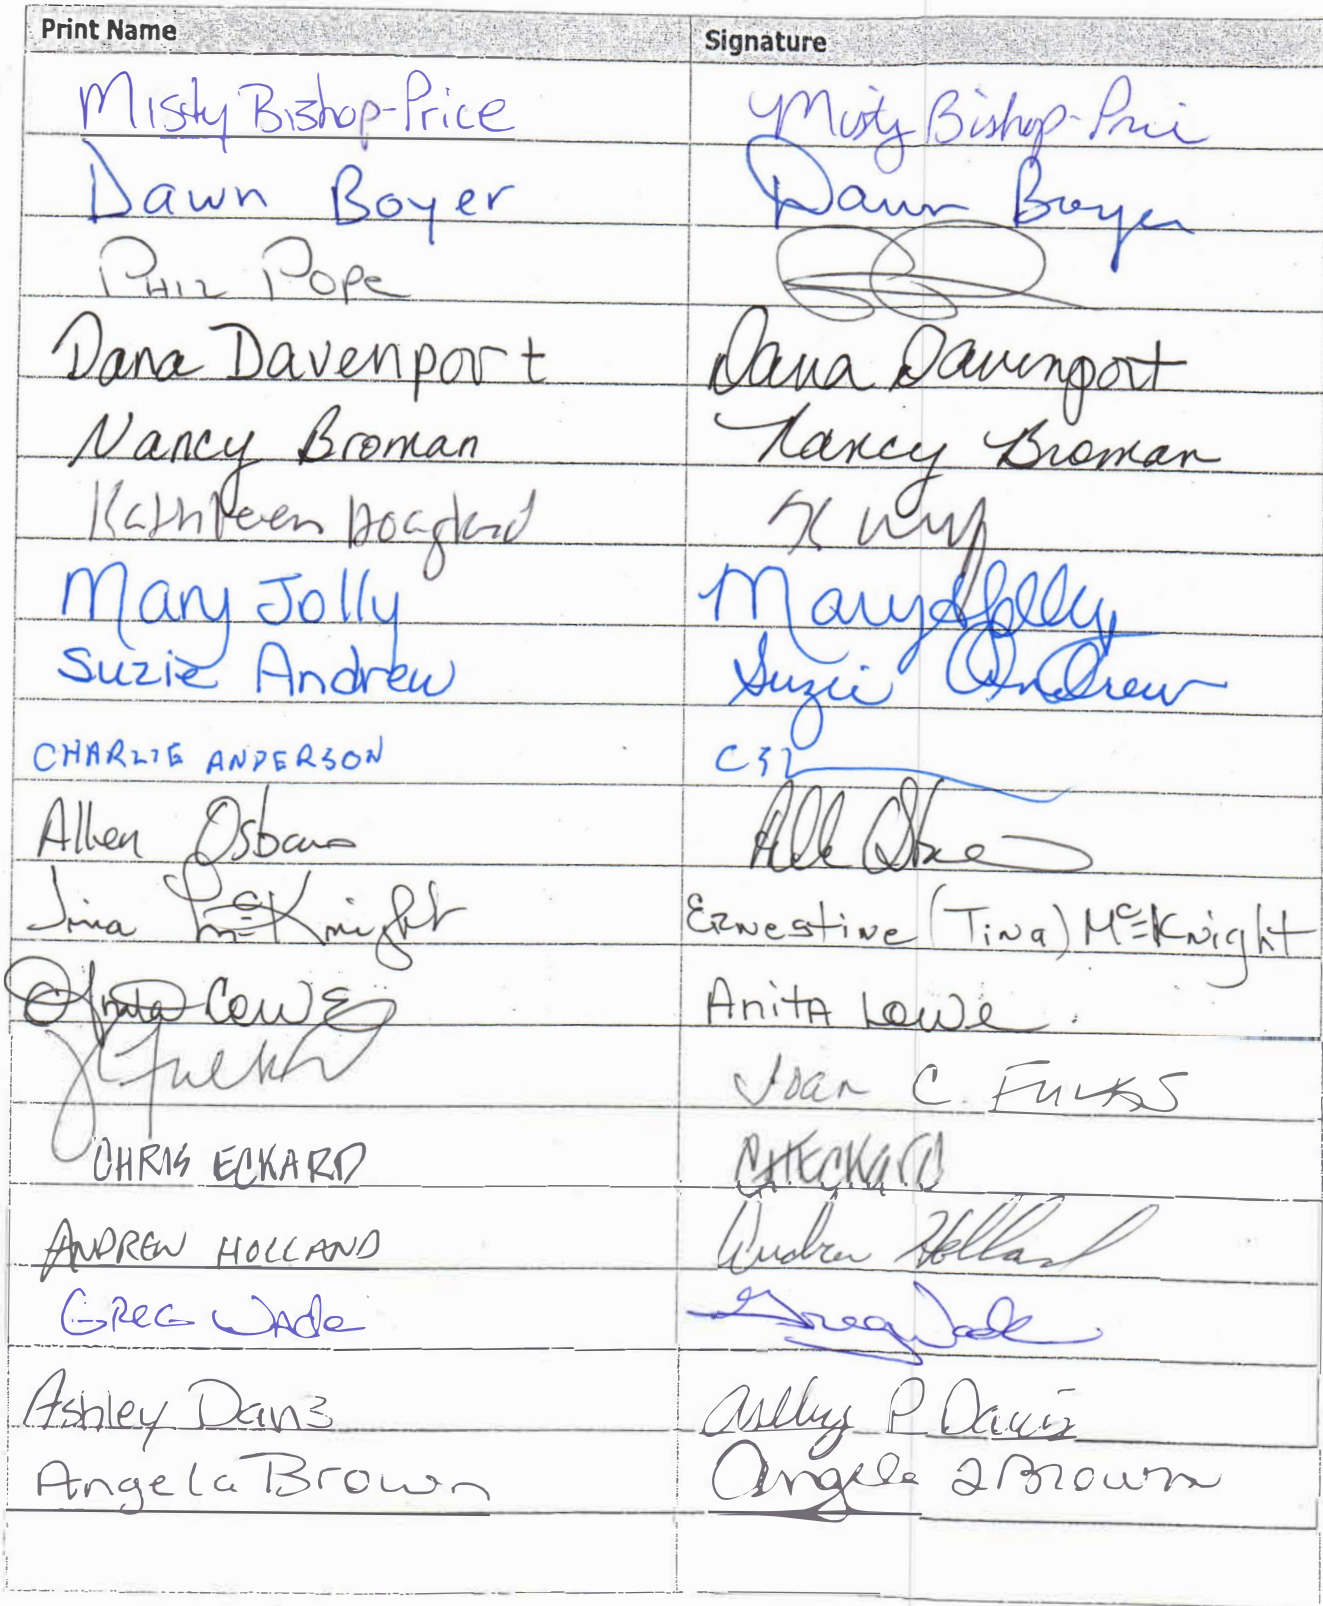 Print Name Signature
Misty Bishop-Price Misty Bishop-Price
Dawn Boyer Dawn Boyer
PHIL POPe
Dana Davenport Dana Davenport
Nancy Broman Nancy Broman
Kathleen Hoagland
Mary Jolly Mary Jolly
Suzie Andrew Suzie Andrew
CHARLIE ANDERSON
Allen Osbourn
Tina McKnight Ernestine (Tina) McKnight
Anita Lowe Anita Lowe
Joan C. Fucks
CHRIS ECKARD CHECKARD
ANDREW HOLLAND Andrew Holland
GREG WADe Greg Wade
Ashley Davis Ashley P Davis
Angela Brown Angela L Brown